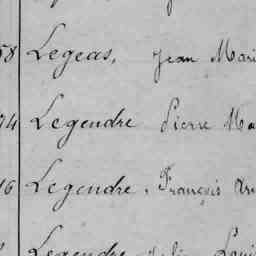 58 Legeas, Jean Mari
74 Legendre Pierre Ma
16 Legendre, François
Legendre